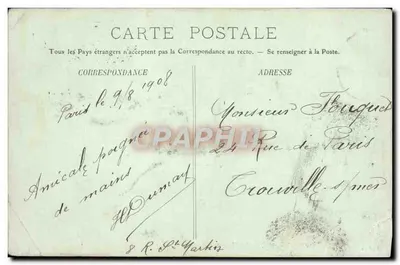 CARTE POSTALE
Tous les Pays étrangers n'acceptent pas la Correspondance au recto. — Se renseigner à la Poste.
CORRESPONDANCE
ADRESSE
Paris le 9/8 1908
Amicale poignée
de mains
HDumay
8 R. St Martin
Monsieur Fouquet
24 Rue de Paris
Trouville s/mer
CPARAMA